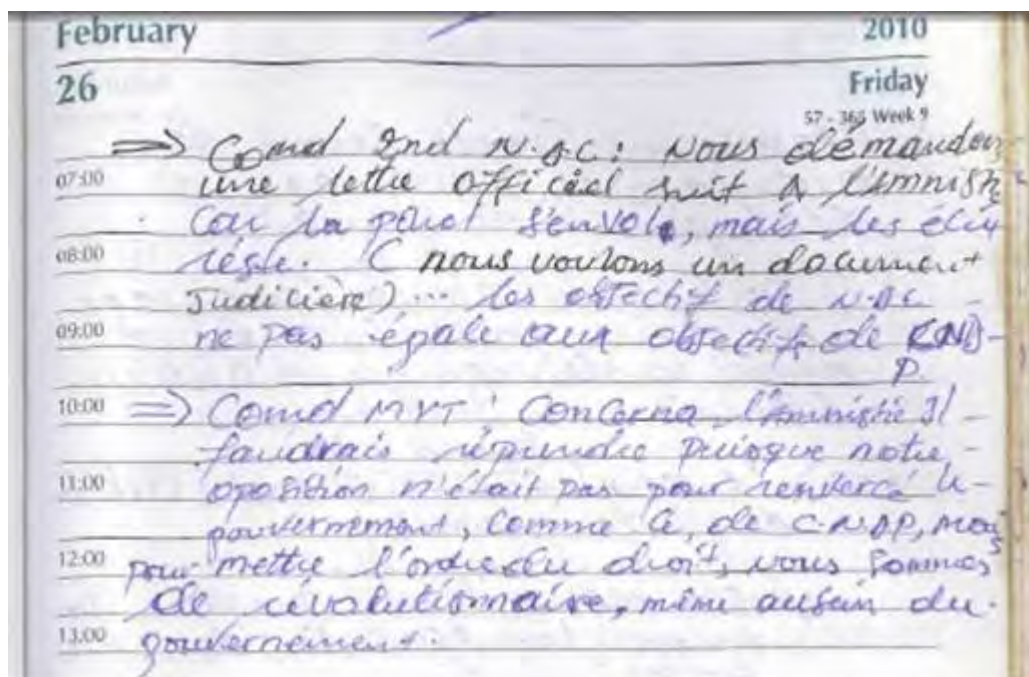 February 2010
26 Friday
57 - 365 Week 9
=> Comd 2nd N.DC: Nous démandons
07:00 une lettre officiel suit à l'Amnisti
Car la parol s'envole, mais les écri
08:00 reste. ( nous voulons un document
Judicière)... Les objectif de N.DC
09:00 ne pas égale aux objectifs de CND-
P.
10:00 => Comd MVT: Concerna l'Amnistie Il
faudrais répundre puisque notre
11:00 oposition n'était pas pour renvercé le
gouvernement, Comme Ce de C.NDP, mais
12:00 pour mettre l'ordre du droit, nous sommes
de révolutionnaire, même ausein du
13:00 gouvernement.